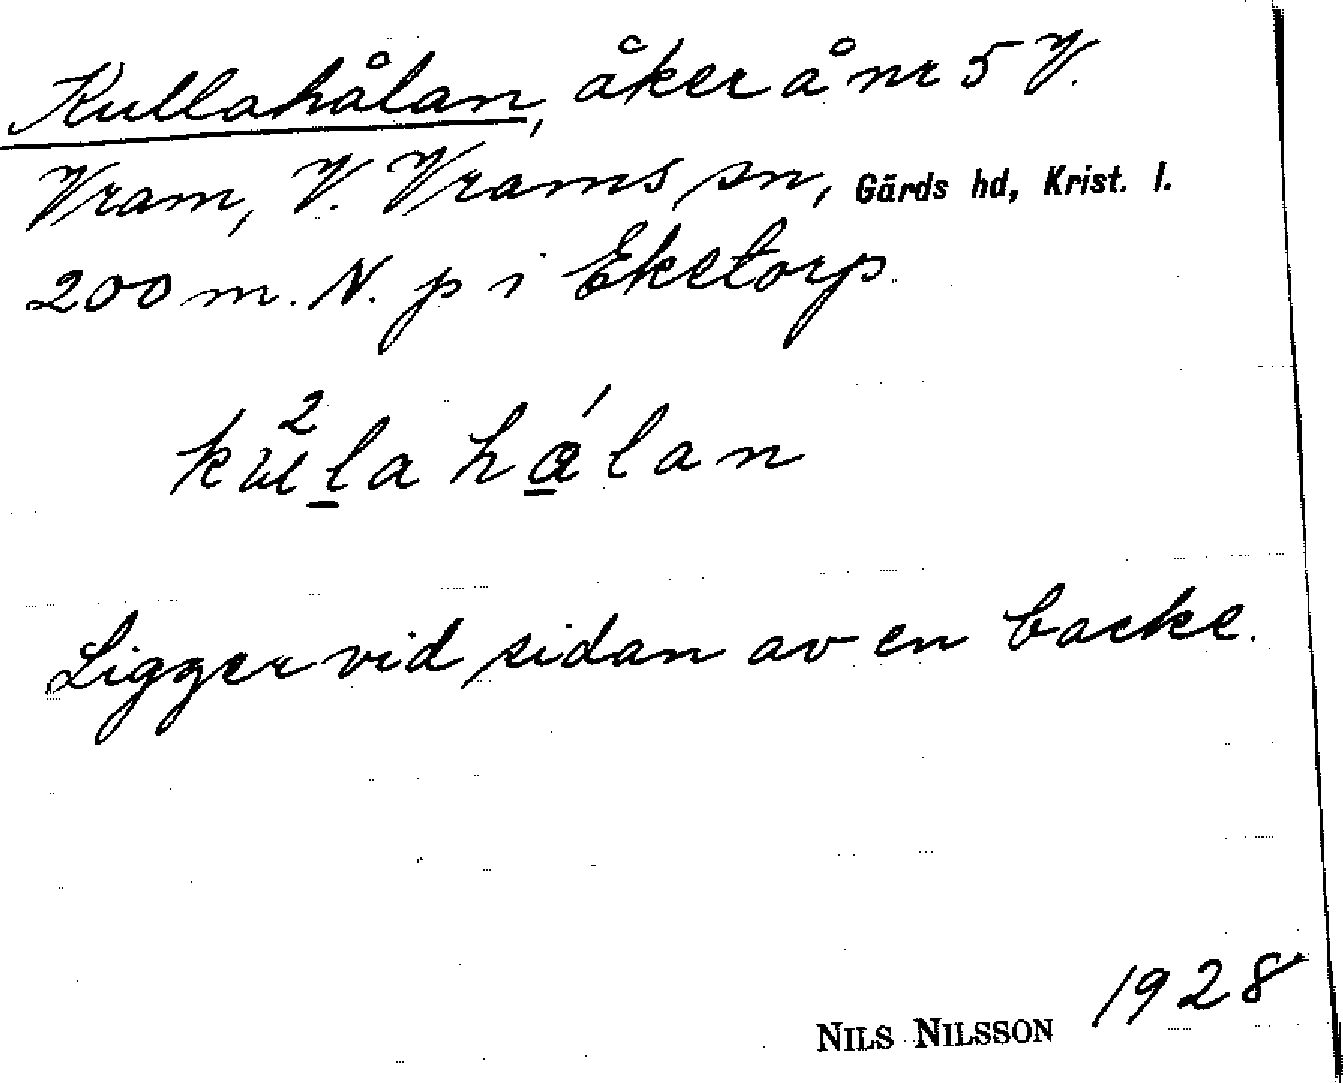 Kullahålan, åker å nr 5 V.
Vram, V. Vrams sn, Gärds hd, Krist. l.
200 m. N. p i Eketorp.
Ligger vid sidan av en backe.
NILS NILSSON 1928